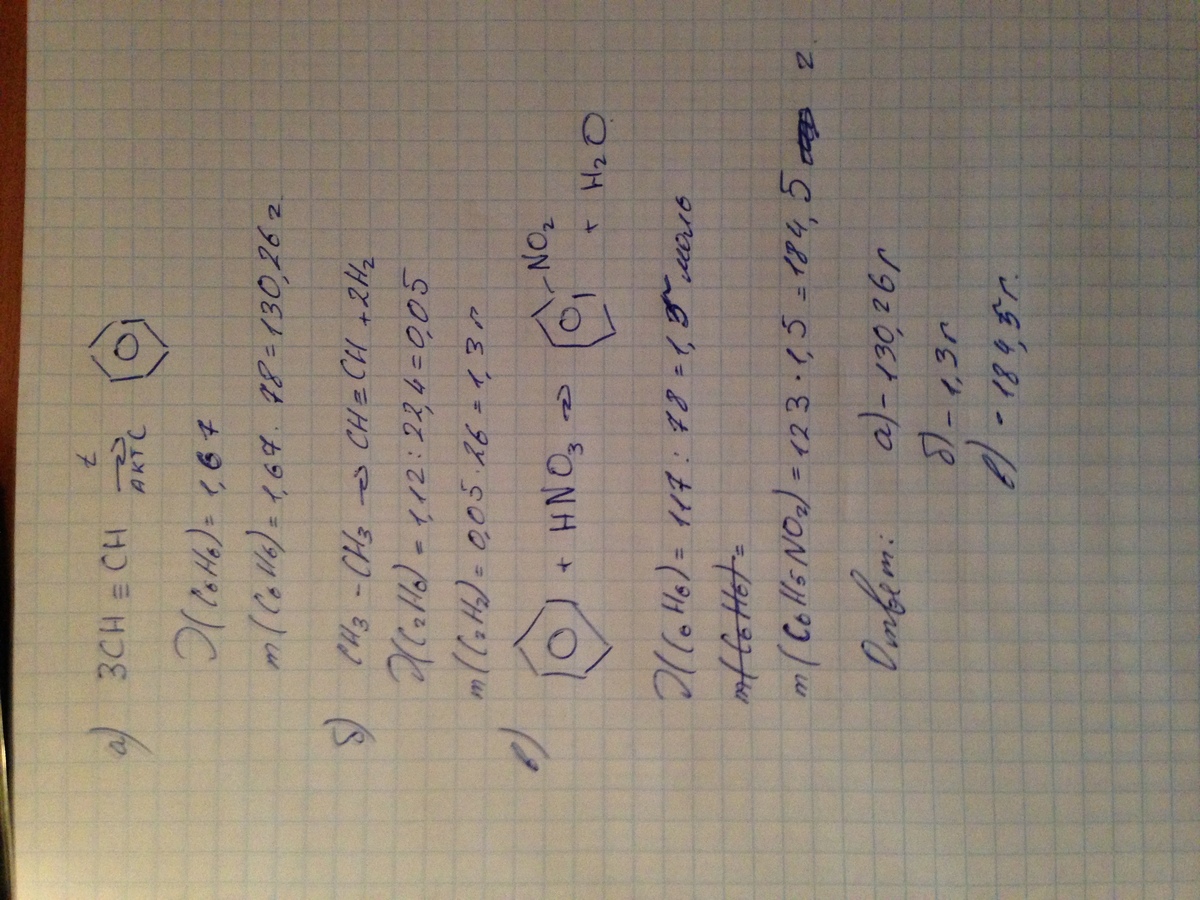 а) 3CH ≡ CH
t
АКТ C
ν(C₆H₆) = 1,67
m(C₆H₆) = 1,67 · 78 = 130,26 г
б) CH₃ – CH₃ → CH ≡ CH + 2H₂
ν(C₂H₆) = 1,12 : 22,4 = 0,05
m(C₂H₂) = 0,05 · 26 = 1,3 г
в) + HNO₃ → –NO₂ + H₂O
ν(C₆H₆) = 117 : 78 = 1,5 моль
m(C₆H₆) =
m(C₆H₅NO₂) = 123 · 1,5 = 184,5 г.
Ответ: а) – 130,26 г
б) – 1,3 г
в) - 184,5 г.